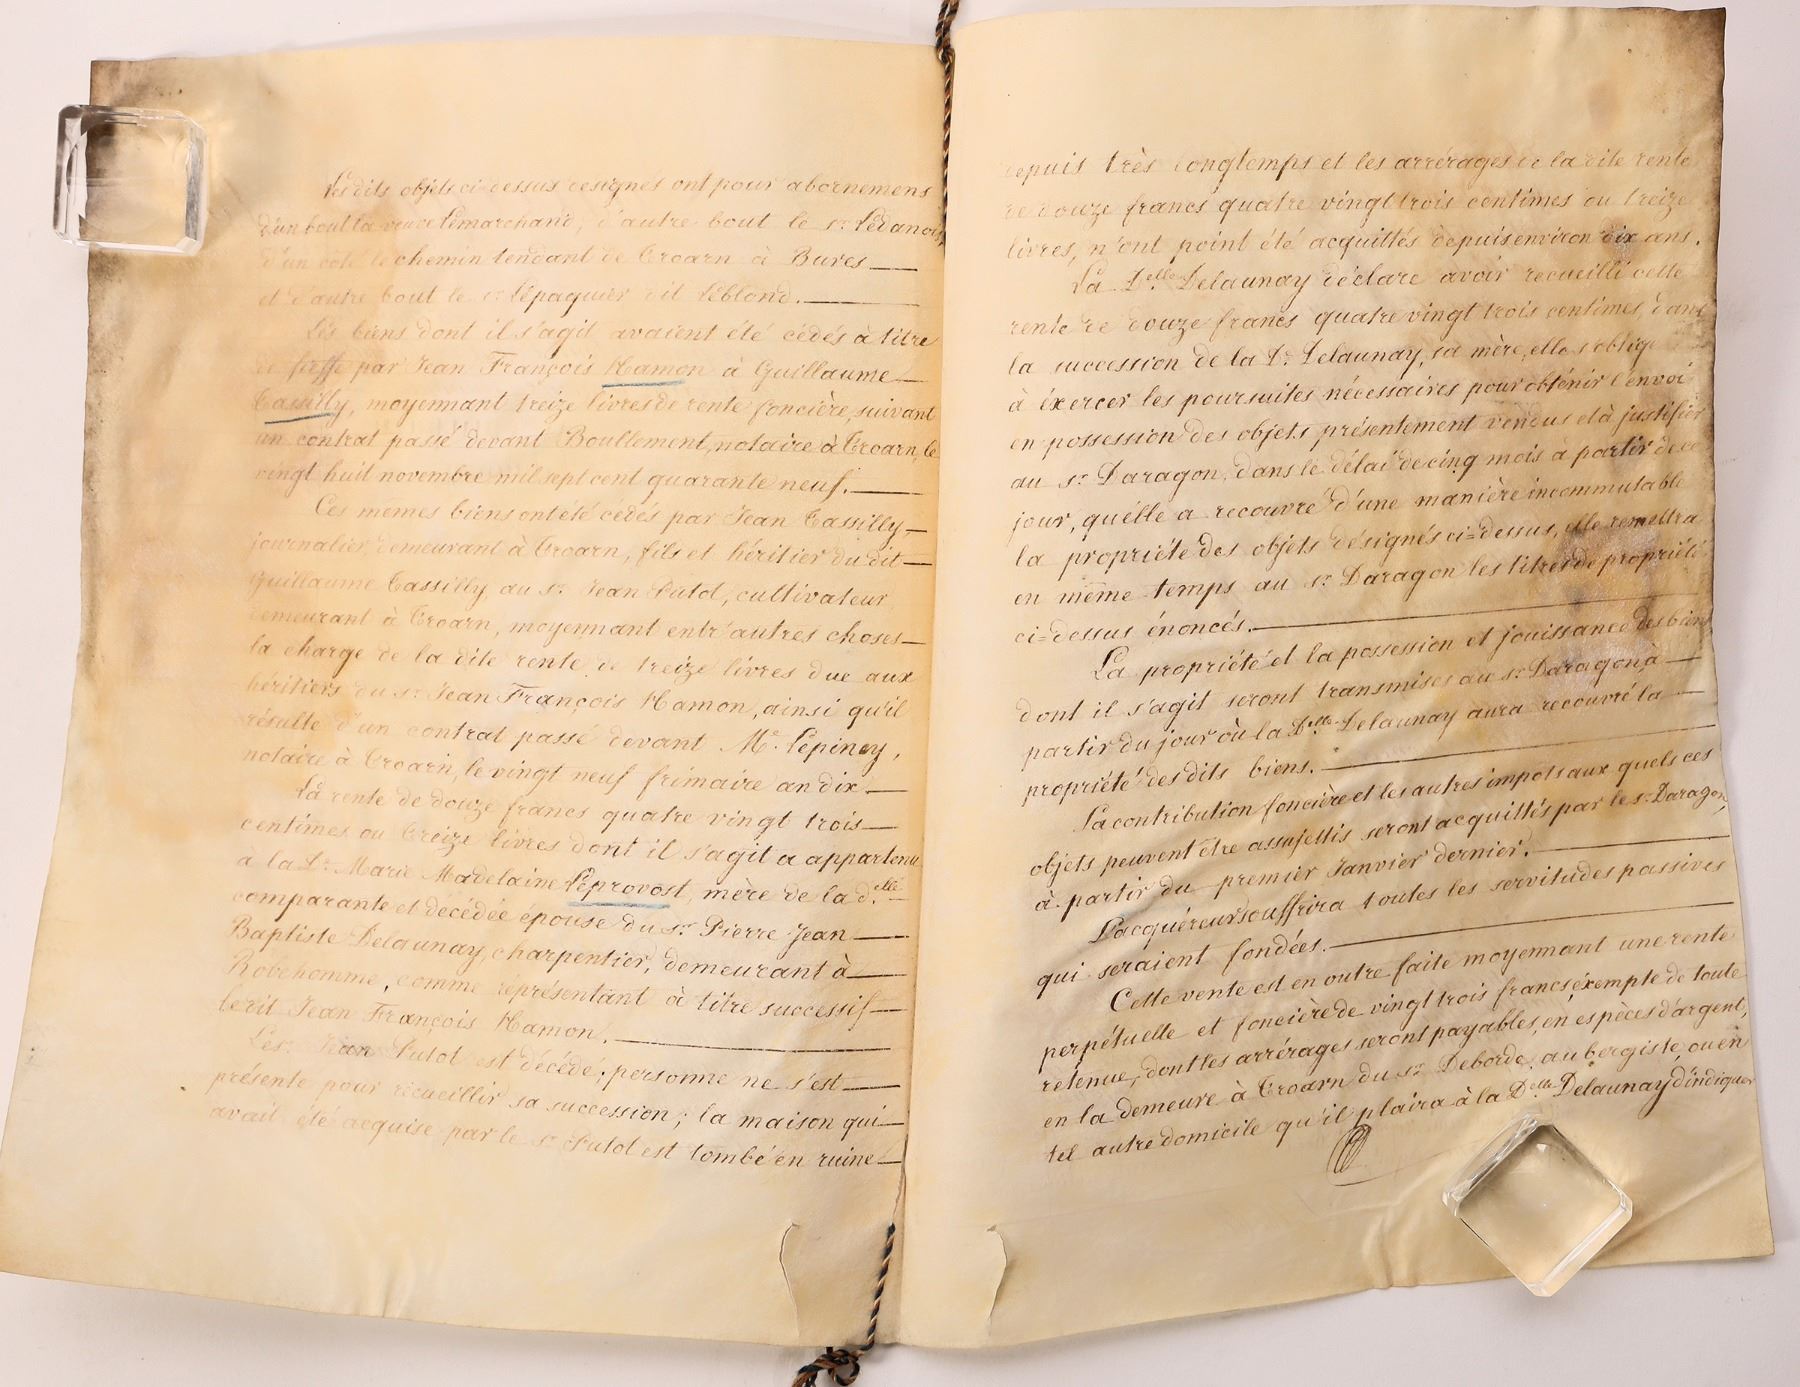 Les dits objets ci dessus designés ont pour abornemens
d'un bout la veuve Lemarchand, d'autre bout le sr. Lédanois,
d'un coté le chemin tendant de Troarn à Bures
et d'autre bout le sr. Lépaquier dit Léblond.
Les biens dont il s'agit avaient été cédés à titre
de fieffe par Jean François Hamon à Guillaume
Tassilly, moyennant treize livres de rente foncière, suivant
un contrat passé devant Boullement, notaire à Troarn, le
vingt huit novembre mil sept cent quarante neuf.
Ces memes biens ont été cédés par Jean Tassilly
journalier, demeurant à Troarn, fils et héritier du dit
Guillaume Tassilly au sr. Jean Sutol, cultivateur
demeurant à Troarn, moyennant entr'autres choses
la charge de la dite rente de treize livres due aux
héritiers du sr. Jean François Hamon, ainsi qu'il
résulte d'un contrat passé devant Me. Lépiney,
notaire à Troarn, le vingt neuf frimaire an dix
La rente de douze francs quatre vingt trois
centimes ou treize livres dont il s'agit a appartenu
à la De. Marie Madelaine Léprovost, mère de la d.elle
comparante et décédée épouse du sr. Pierre Jean
Baptiste Delaunay, charpentier, demeurant à
Robehomme, comme réprésentant à titre successif
le dit Jean François Hamon.
Le sr. Jean Sutol est décédé; personne ne s'est
présenté pour recueillir sa succession; la maison qui
avait été acquise par le sr. Sutol est tombé en ruine
depuis très longtemps et les arrérages de la dite rente
de douze francs quatre vingt trois centimes ou treize
livres, n'ont point été acquittés depuis environ dix ans.
La D.elle Delaunay déclare avoir recueilli cette
rente de douze francs quatre vingt trois centimes, dans
la succession de la De. Delaunay, sa mère, elle s'oblige
à éxercer les poursuites nécessaires pour obténir l'envoi
en possession des objets présentement vendus et à justifier
au sr. Daragon, dans le délai de cinq mois à partir de ce
jour, qu'élle a recouvré d'une manière incommutable
la propriété des objets désignés ci=dessus, elle remettra
en même temps au sr. Daragon les titres de propriété
ci=dessus énoncés.
La propriété et la possession et jouissance des biens
dont il s'agit seront transmises au sr. Daragon à
partir du jour où la D.elle Delaunay aura recouvré la
propriété des dits biens.
La contribution foncière et les autres impots aux quels ces
objets peuvent être assujettis seront acquittés par le sr. Daragon,
à partir du premier Janvier dernier.
L'acquéreur souffrira toutes les servitudes passives
qui seraient fondées.
Cette vente est en outre faite moyennant une rente
perpétuelle et foncière de vingt trois francs, éxempte de toute
reténue, dont les arrérages seront payables, en espèces d'argent,
en la demeure à Troarn du sr. Deborde, aubergiste, ou en
tel autre domicile qu'il plaira à la D.elle Delaunay d'indiquer